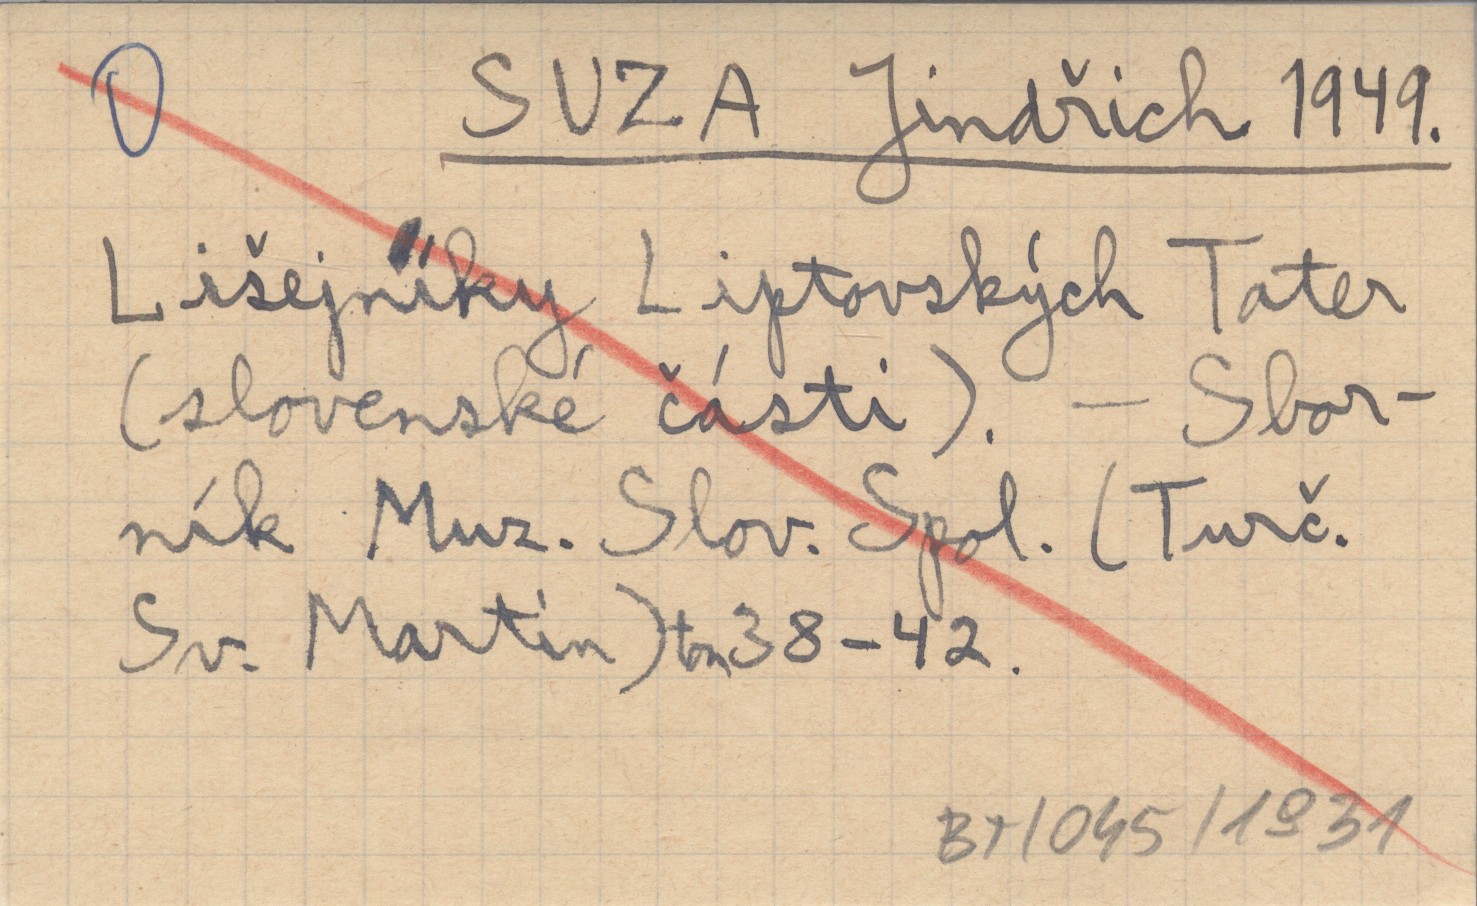 SUZA Jindřich 1949.
Lišejníky Liptovských Tater
(slovenské části). – Sbor-
ník Muz. Slov. Spol. (Turč.
Sv. Martin) tom 38–42.
BT/045/1931